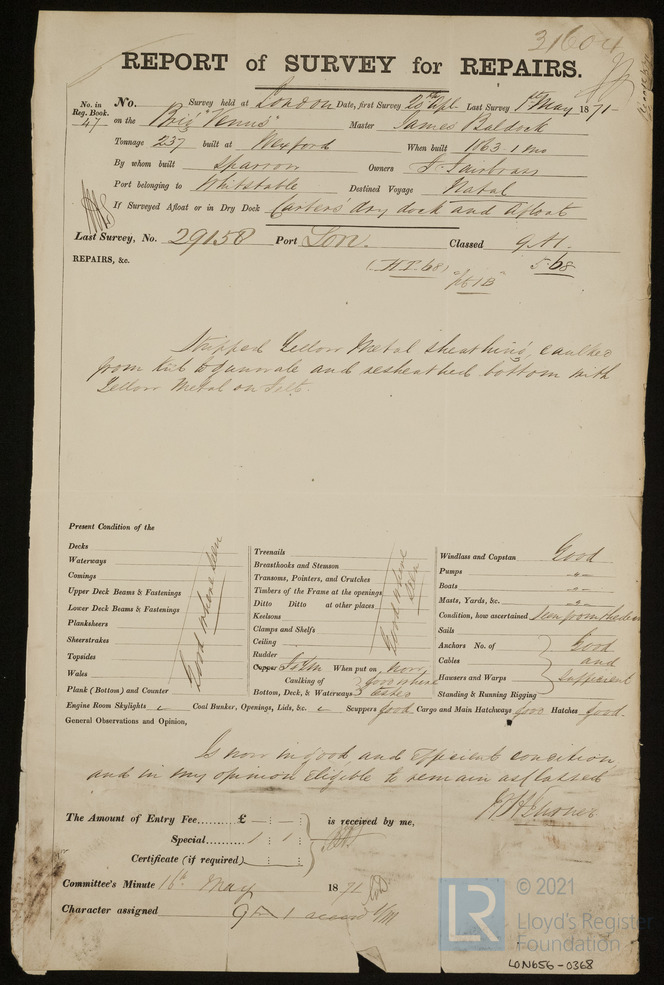 31604
REPORT of SURVEY for REPAIRS.
No. in Reg. Book. 47
No. Survey held at London Date, first Survey 20th Apl Last Survey 1st May 1871
on the Brig "Venus" Master James Baldock
Tonnage 237 built at Wexford When built 1863. 1 mo
By whom built Sparrow Owners Fairbrass
Port belonging to Whitstable Destined Voyage Natal
If Surveyed Afloat or in Dry Dock Carters' dry dock and afloat
Last Survey, No. 29158 Port Lon. Classed 9 A1.
REPAIRS, &c. 5.68
Stripped Yellow Metal sheathing, caulked
from Keel to gunwale and resheathed bottom with
Yellow Metal on Felt.
Present Condition of the
Decks
Waterways
Comings
Upper Deck Beams & Fastenings
Lower Deck Beams & Fastenings
Planksheers
Sheerstrakes
Topsides
Wales
Plank (Bottom) and Counter
Good where seen
Treenails
Breasthooks and Stemson
Transoms, Pointers, and Crutches
Timbers of the Frame at the openings
Ditto Ditto at other places
Keelsons
Clamps and Shelfs
Ceiling
Rudder
Good where seen
Copper When put on, now
Caulking of
Bottom, Deck, & Waterways
Windlass and Capstan Good
Pumps "
Boats "
Masts, Yards, &c. "
Condition, how ascertained
Sails
Anchors No. of
Cables
Hausers and Warps
Standing & Running Rigging
Good and sufficient
Engine Room Skylights Coal Bunker, Openings, Lids, &c. Scuppers good Cargo and Main Hatchways good Hatches good.
General Observations and Opinion,
Is now in good and efficient condition,
and in my opinion eligible to remain as classed
The Amount of Entry Fee...... £ — : :
Special......... 1 : 1 :
is received by me,
Certificate (if required)
Committee's Minute 16th May 1871
Character assigned
© 2021
LR
Lloyd's Register
Foundation
LON656-0368